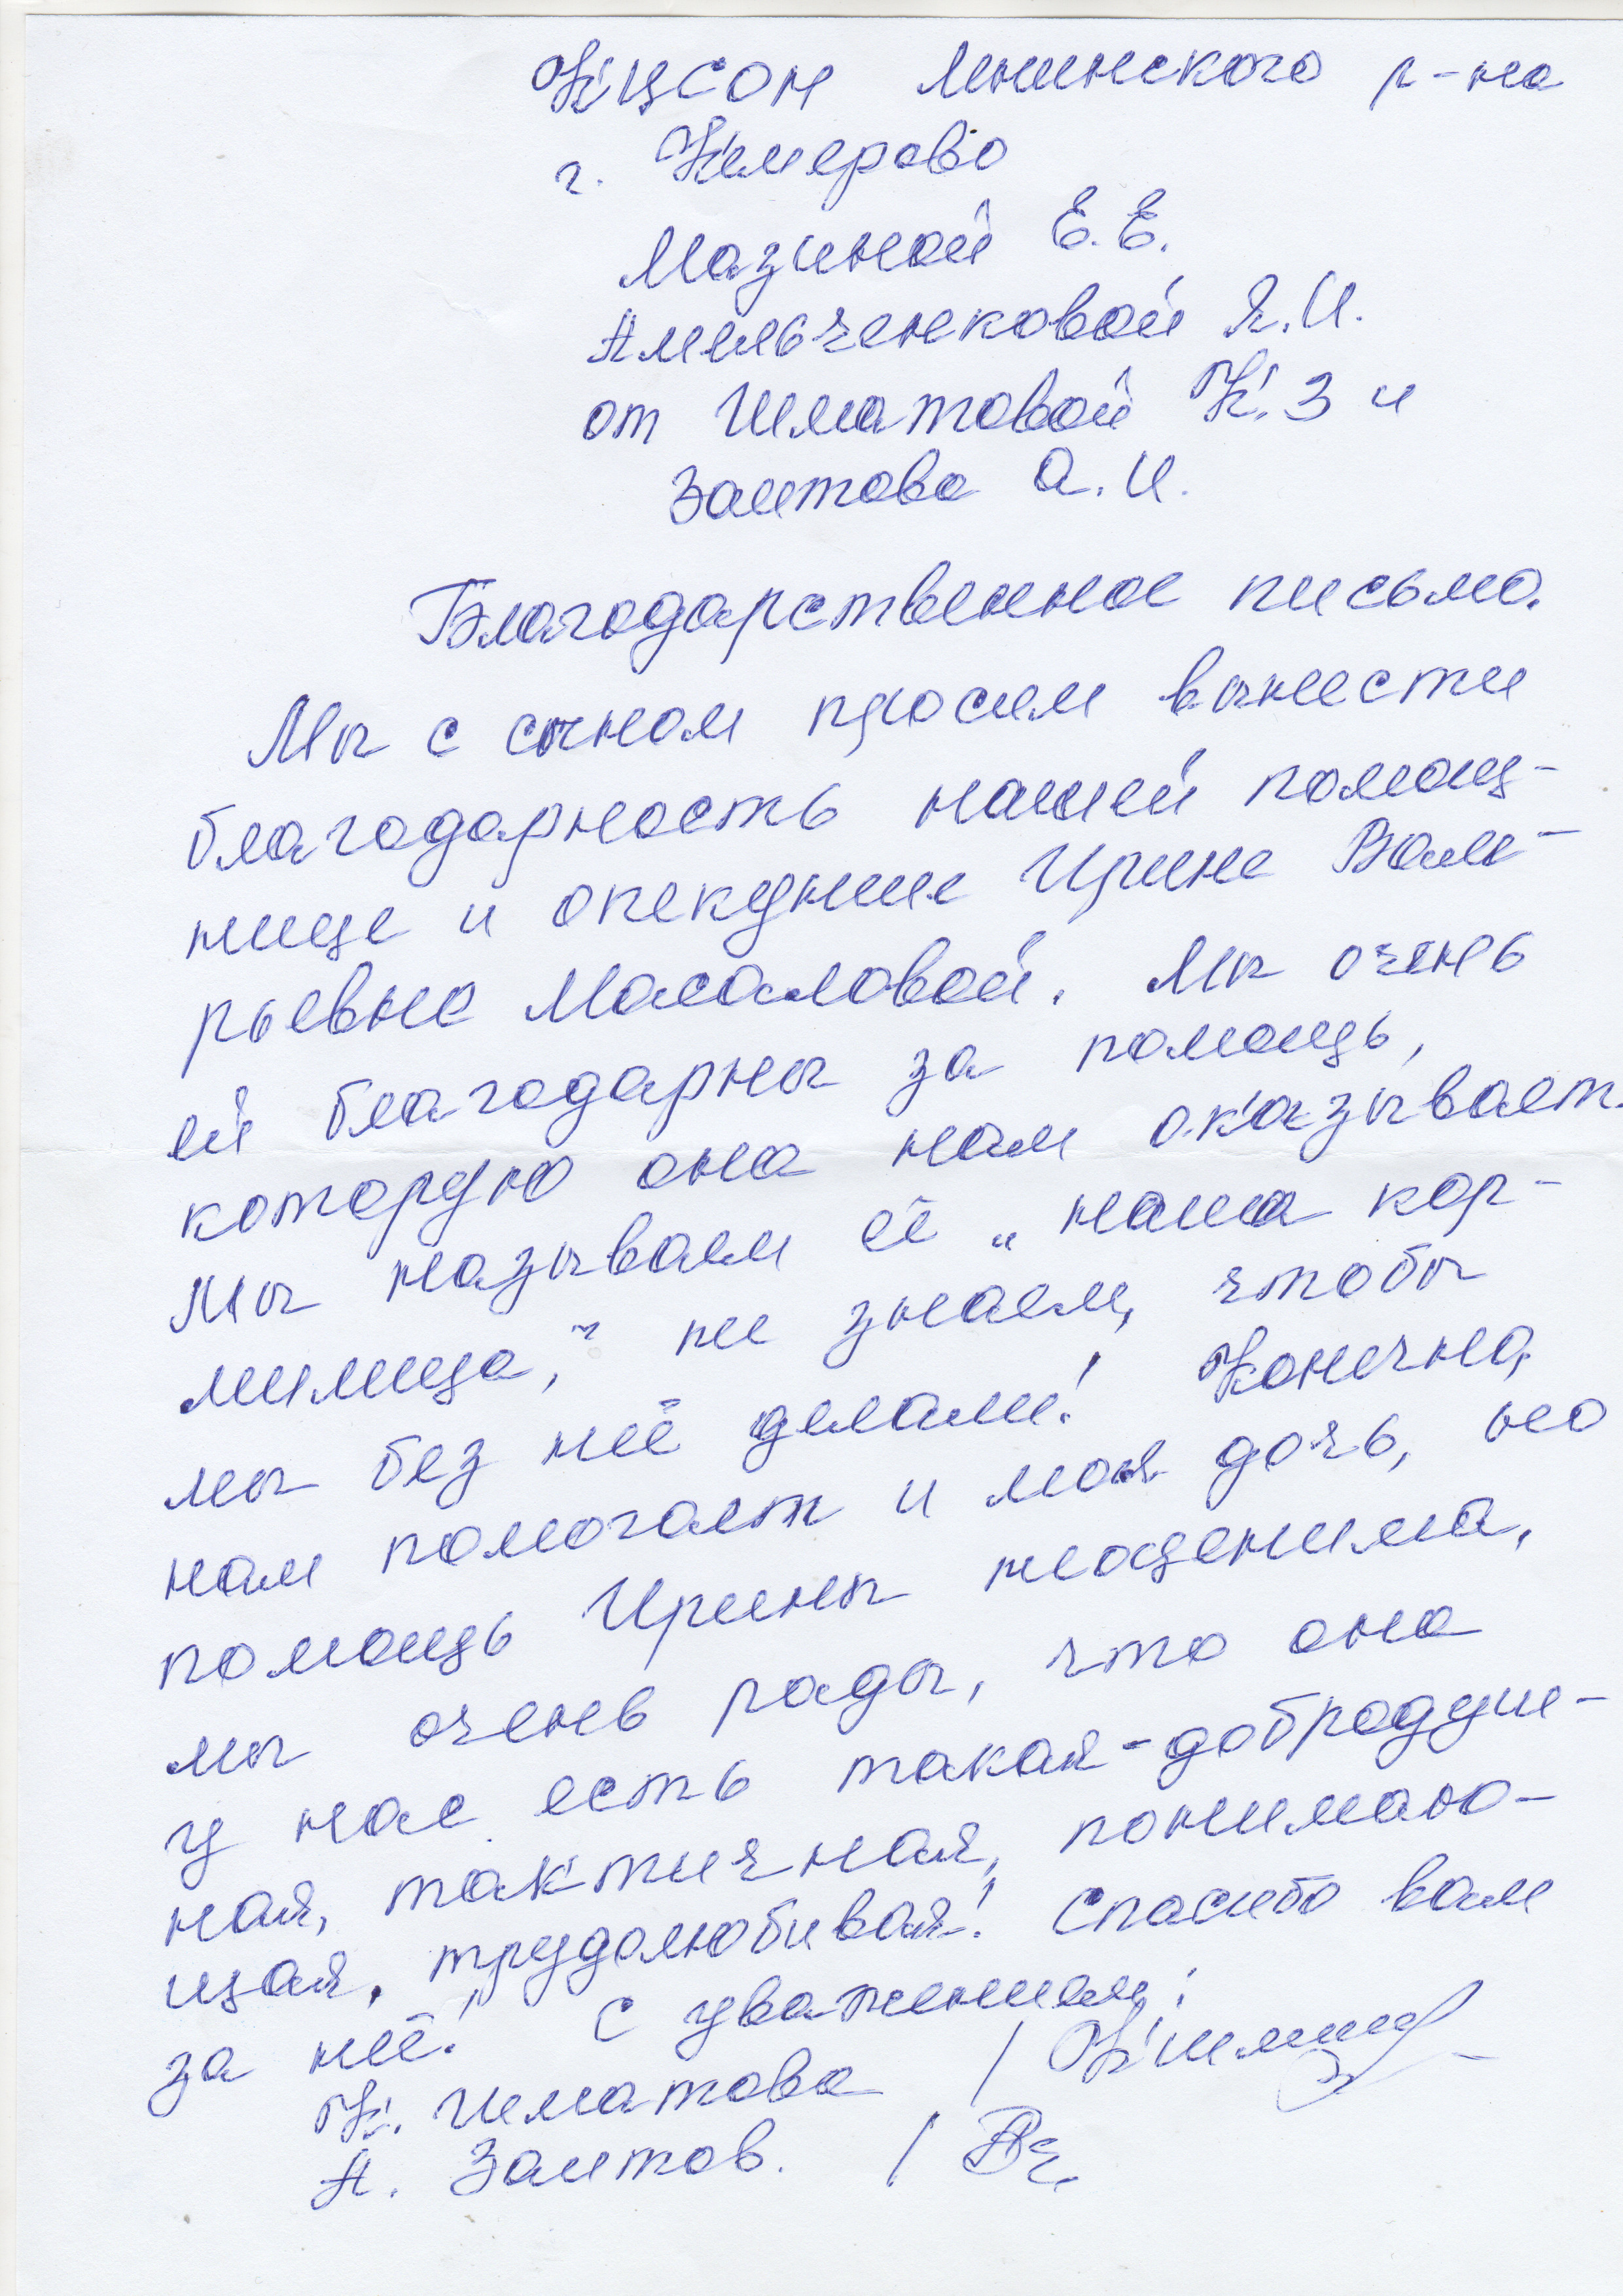 КЦСОН Ленинского р-на
г. Кемерово
Мазиной Е.Е.
Амельченковой Я.И.
от Шматовой К.З и
Заитова А.И.
Благодарственное письмо.
Мы с сыном просим вынести
благодарность нашей помощ-
нице и опекунше Ирине Вале-
рьевне Масаловой. Мы очень
ей благодарны за помощь,
которую она нам оказывает.
Мы называем её „наша кор-
милица," не знаем, чтобы
мы без неё делали! Конечно,
нам помогает и моя дочь, но
помощь Ирины неоценима,
мы очень рады, что она
у нас есть такая-добродуш-
ная, тактичная, понимаю-
щая, трудолюбивая! Спасибо вам
за неё! С уважением:
К. Шматова /
А. Заитов. /